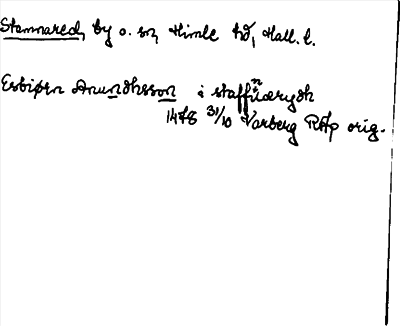 Stamnared, by o. sn, Himle hd, Hall. l.
Esbiørn Anundhsson i staffnarydh
1478 31/10 Varberg RAp orig.